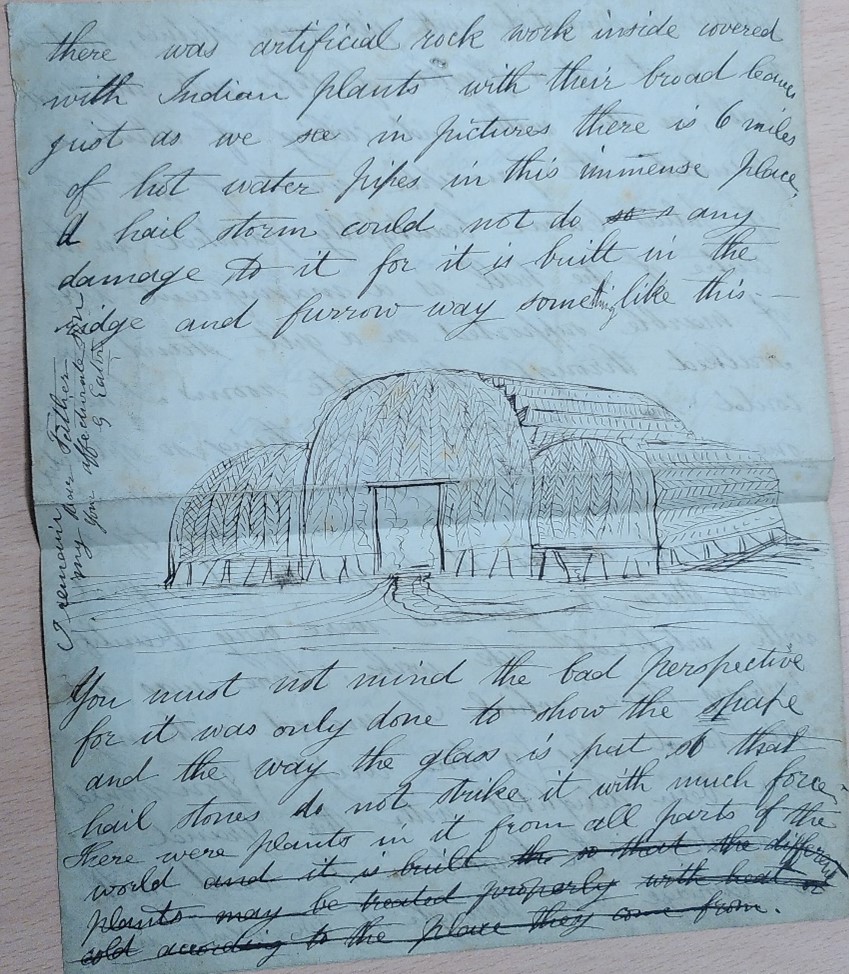 there was artificial rock work inside covered
with Indian plants with their broad leaves
just as we see in pictures there is 6 miles
of hot water pipes in this immense place,
A hail storm could not do any
damage to it for it is built in the
ridge and furrow way something like this —
You must not mind the bad perspective
for it was only done to show the shape
and the way the glass is put so that
hail stones do not strike it with much force.
There were plants in it from all parts of the
world and it is built the so that the different
plants may be treated properly with heat or
cold according to the place they come from.
I remain
my Dear Father
your affectionate son
G Eaton